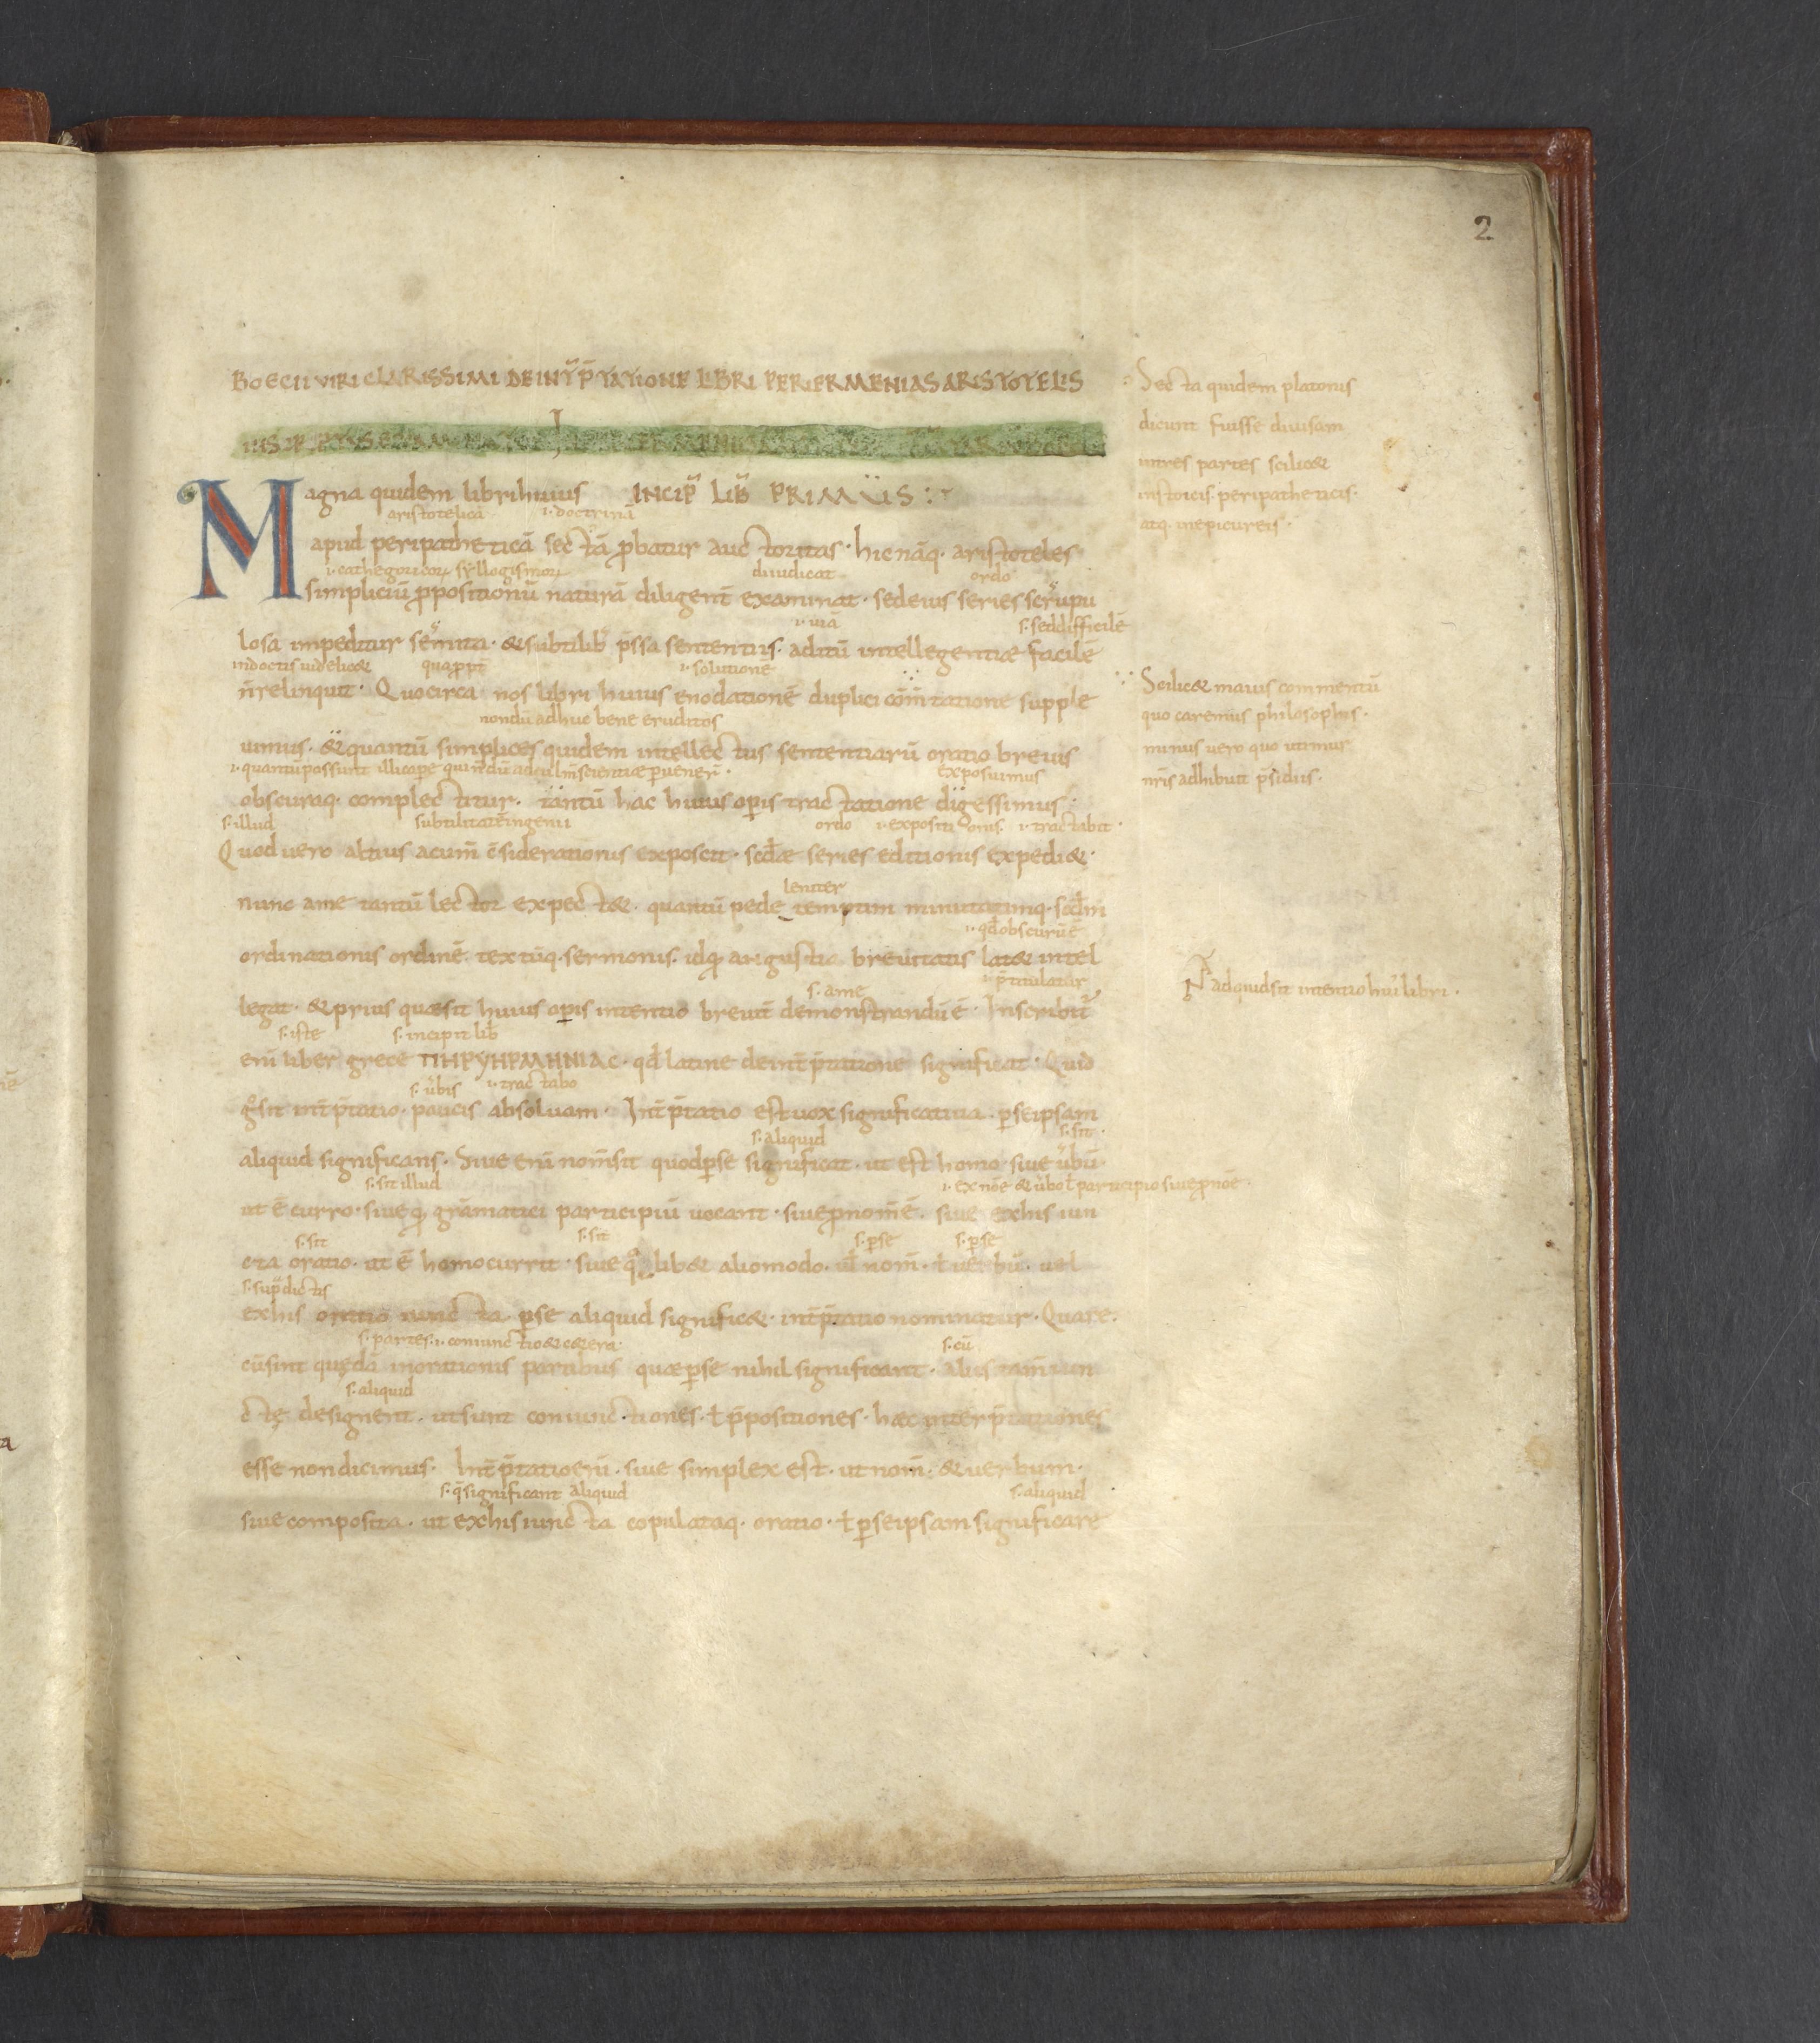 2
BOECII VIRI CLARISSIMI DE INT̄P̄TATIONE LIBRI PERIERMENIAS ARISTOTELIS
Magna quidem libri huius INCIP̄ LIB̄ PRIMUS
aristotelicā ·i· doctrinā
apud peripatheticā sectā ꝓbatur auctoritas · hic nāq· aristoteles
·i· cathegoricoꝝ syllogismoꝝ diiudicat ordo
simpliciū ꝓpositionū naturā diligent̄ examinat · sed eius series scrupu
·i· uiā s· sed difficilē
losa impeditur semita · & subtilib; p̄ssa sententiis · aditū intellegentiæ facilē
indoctis uidelic& quaꝓpt̄ ·i· solutionē
n̄ relinquit · Quocirca nos libri huius enodationē duplici cōm̄tatione supple
nondū adhuc bene eruditos
uimus · & quantū simplices quidem intellectus sententiarū oratio breuis
·i· quantū possunt illi caꝑe qui nōdū ad culm̄ scientiæ ꝑuener̄ · exposuimus
obscuraq· complectitur · tantū hac huius oꝑis tractatione digessimus ·
s· illud subtilitatē ingenii ordo ·i· expositionis · ·i· tractabit ·
Quod uero altius acum̄ c̄siderationis exposcit · scd̄æ series editionis expedi& ·
leniter
nunc a me tantū lector expect& · quantū pede temptim minutatimq· scd̄m
·i· qd̄ obscurū ē
ordinationis ordinē textūq· sermonis · idq̨ angustia breuitatis lat& intel
s· a me ·i· p̄titulatur
legat · & prius quæsit huius oꝑis intentio breuit̄ demonstrandū ē · Inscribit̄
s· iste s· incipit lib̄
eni̅ liber grece ΠΗΡΥΗΡΜΗΝΙΑC · qd̄ latine de int̄p̄tatione significat · Quid
s· ūbis ·i· tractabo
g̊ sit int̄p̄tatio · paucis absoluam · Int̄p̄tatio est uox significatiua · ꝑ se ipsam
s· aliquid s· sit ·
aliquid significans · Siue eni̅ nom̄ sit quod ꝑ se significat · ut est homo · siue ūbū
s· sit illud ·i· ex nōe & ūbo ł participio siue ꝓnōe ·
ut ē curro · siue q̨ grāmatici participiū uocant · siue ꝓnom̄ ē · siue ex his iun
s· sit s· sit s· ꝑ se s· ꝑ se
cta oratio · ut ē homo currit · siue q̊ lib& alio modo · ul̄ nom̄ · ł uerbū · uel
s· sup̄dictis
ex his oratio iuncta · ꝑ se aliquid signific& · int̄p̄tatio nominatur · Quare ·
s· partes ·i· coniunctio & c&era · s· cū
cū sint quędā in orationis partibus quæ ꝑ se nihil significant · aliis tam̄ iun
s· aliquid
ctę designent · ut sunt coniunctiones · ł p̄positiones · hæc interp̄tationes
esse non dicimus · Int̄p̄tatio eni̅ · siue simplex est · ut nom̄ · & uerbum ·
s· q̄ significant aliquid s· aliquid
siue composita · ut ex his iuncta copulataq· oratio · ł ꝑ se ipsam significare
Secta quidem platonis
dicunt fuisse diuisam
in tres partes scilic&
in stoicis · peripatheticis ·
atq· in epicureis ·
Scilic& maius commentū
quo caremus philosophis ·
minus uero quo utimur
nr̄is adhibuit p̄sidiis ·
ad quid sit intentio hui' libri ·